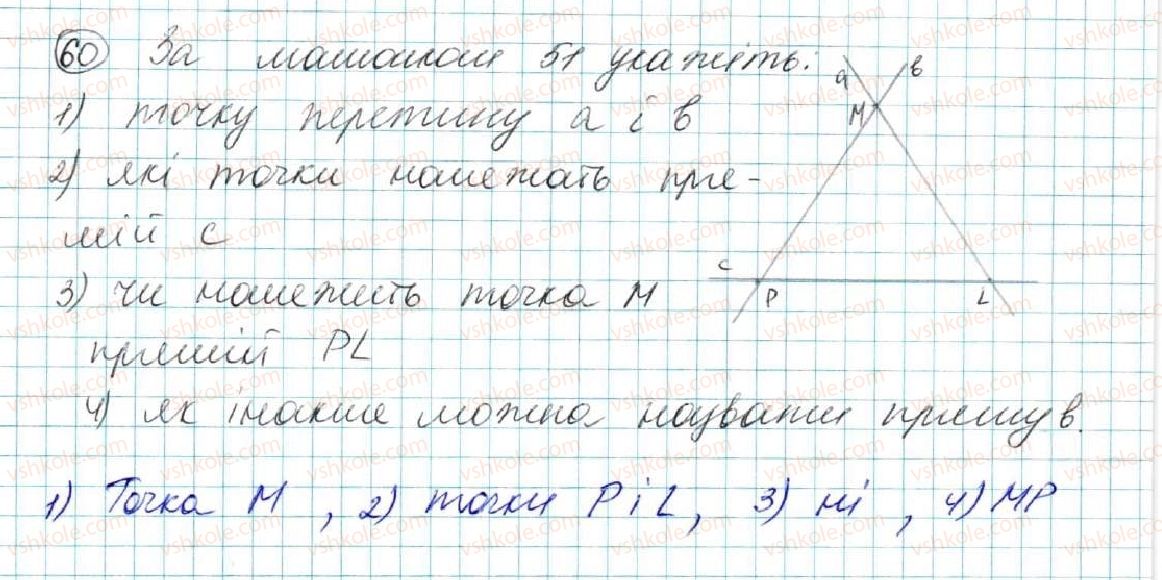 60 За малюнком 51 укажіть:
1) точку перетину a і b
2) які точки належать пря-
мій c
3) чи належить точка M
прямій PL
4) як інакше можна назвати пряму b.
a b
M
c
P L
1) Точка M, 2) точки P і L, 3) ні, 4) MP
vshkole.com